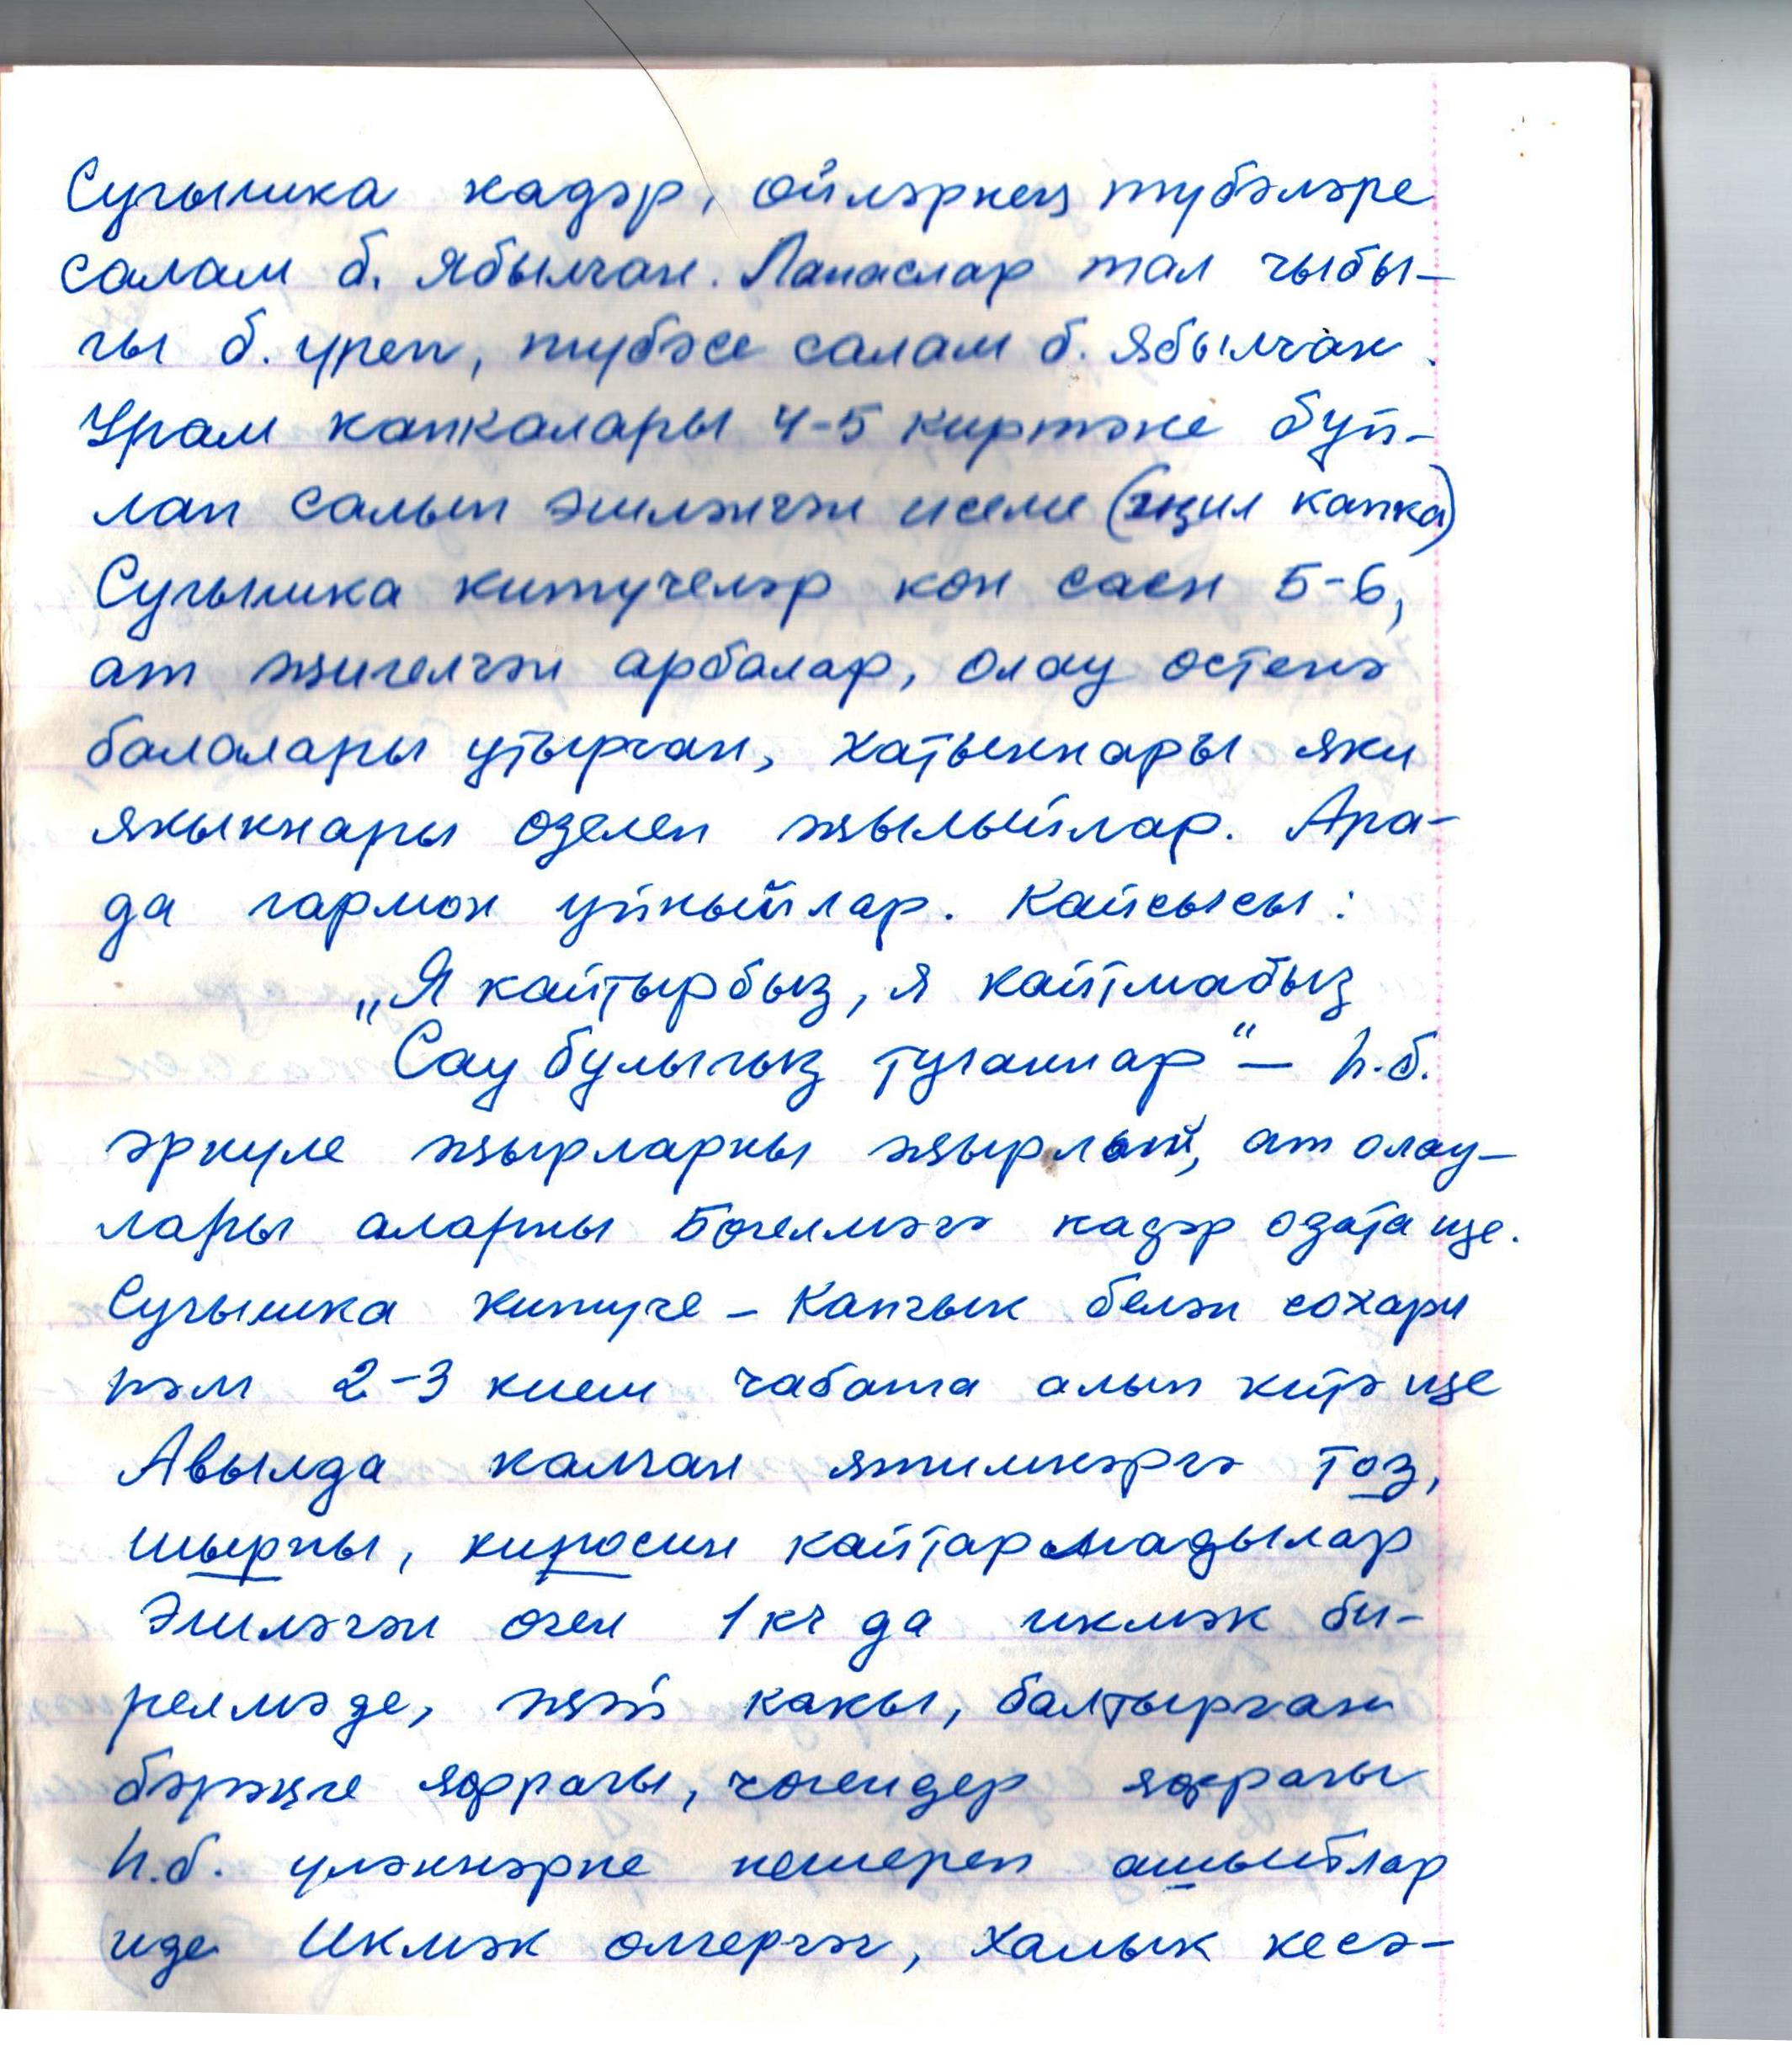 Сугышка кадәр, өйләрнең түбәләре
салам б. ябылган. Лапаслар тал чыбы-
гы б. үреп, түбәсе салам б. ябылган.
Урам капкалары 4-5 киртәне буй-
лап салып эшләнгән исеме (җил капка)
Сугышка китүчеләр көн саен 5-6,
ат җигелгән арбалар, олау өстенә
балалары утырган, хатыннары яки
якыннары өзелеп җылыйлар. Ара-
да гармон уйныйлар. Кайсысы:
„Я кайтырбыз, я кайтмабыз
Сау булыгыз туганнар" – һ.б.
төркүле җырларны җырлый, ат олау-
лары аларны Бөгелмәгә кадәр озата иде.
Сугышка китүче – капчык белән сохари
һәм 2-3 кием чабата алып китә иде
Авылда калган ятимнәргә тоз,
шырпы, киросин кайтармадылар
Эшләгән өчен 1 кг да икмәк би-
релмәде, җәй какы, балтырган
бәрәңге яфрагы, чөгендер яфрагы
һ.б. үләннәрне пешереп ашыйлар
иде Икмәк өлгергәч, халык кесә-